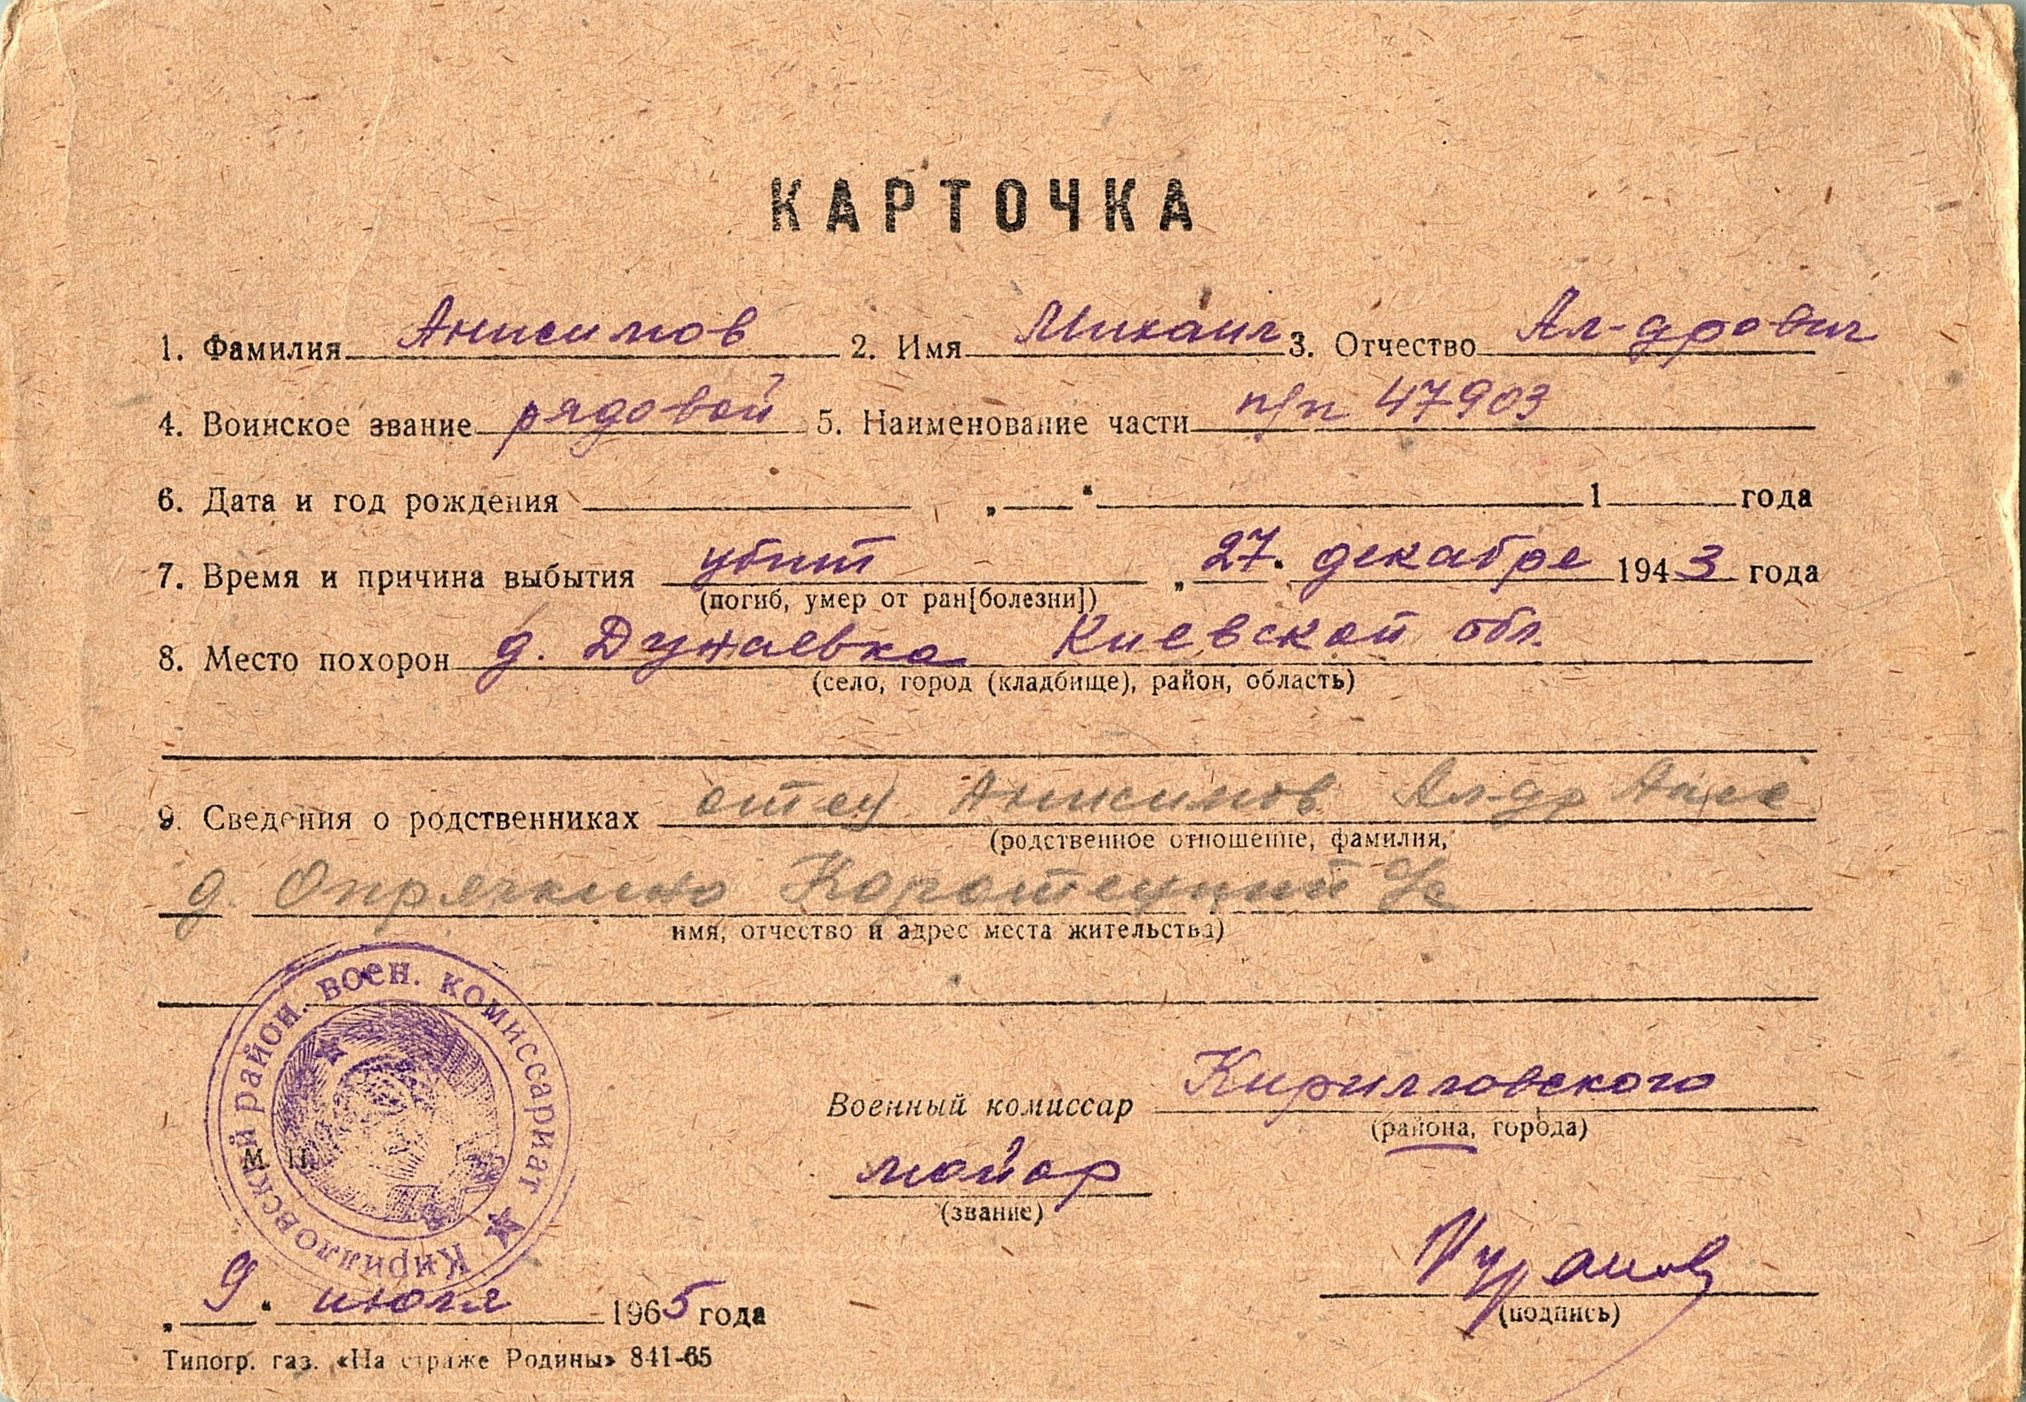 КАРТОЧКА
1. Фамилия Анисимов 2. Имя Михаил 3. Отчество Ал-дрович
4. Воинское звание рядовой 5. Наименование части п/п 47903
6. Дата и год рождения „ “ 1 года
7. Время и причина выбытия убит „27“ декабре 1943 года
(погиб, умер от ран[болезни])
8. Место похорон д. Дунаевка Киевской обл.
(село, город (кладбище), район, область)
9. Сведения о родственниках отец Анисимов Ал-др
(родственное отношение, фамилия,
д. Опрячкино с/с
имя, отчество и адрес места жительства)
Кирилловский район. воен. комиссариат
М. П.
Военный комиссар Кирилловского
(района, города)
майор
(звание)
(подпись)
„9“ июля 1965 года
Типогр. газ. «На страже Родины» 841-65